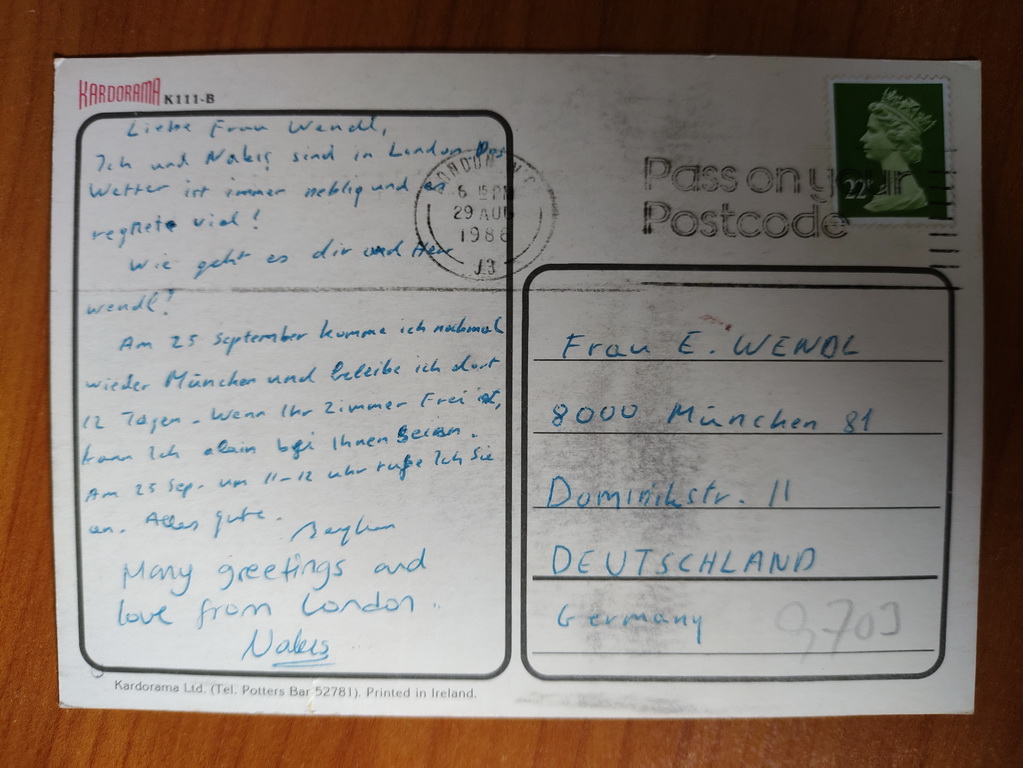 KARDORAMA K111-B
Liebe Frau Wendl,
Ich und Nakış sind in London Das
Wetter ist immer neblig und es
regnete viel!
Wie geht es dir und Herr
wendl?
Am 25 September komme ich nochmal
wieder München und beleibe ich dort
12 Tagen. Wenn Ihr Zimmer Frei ist,
kann Ich alein bei Ihnen
Am 25 Sep. um 11-12 uhr rufe Ich Sie
an. Alles gute.
Many greetings and
love from London.
Nakış
Kardorama Ltd. (Tel. Potters Bar 52781). Printed in Ireland.
LONDON
6 15 PM
29 AUG
1986
Pass on your
Postcode
22P
Frau E. WENDL
8000 München 81
Dominikstr. 11
DEUTSCHLAND
Germany
9703